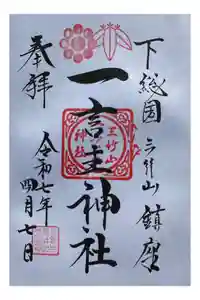 下総国 三竹山 鎮座
一言主神社
奉拝
令和七年
四月七日